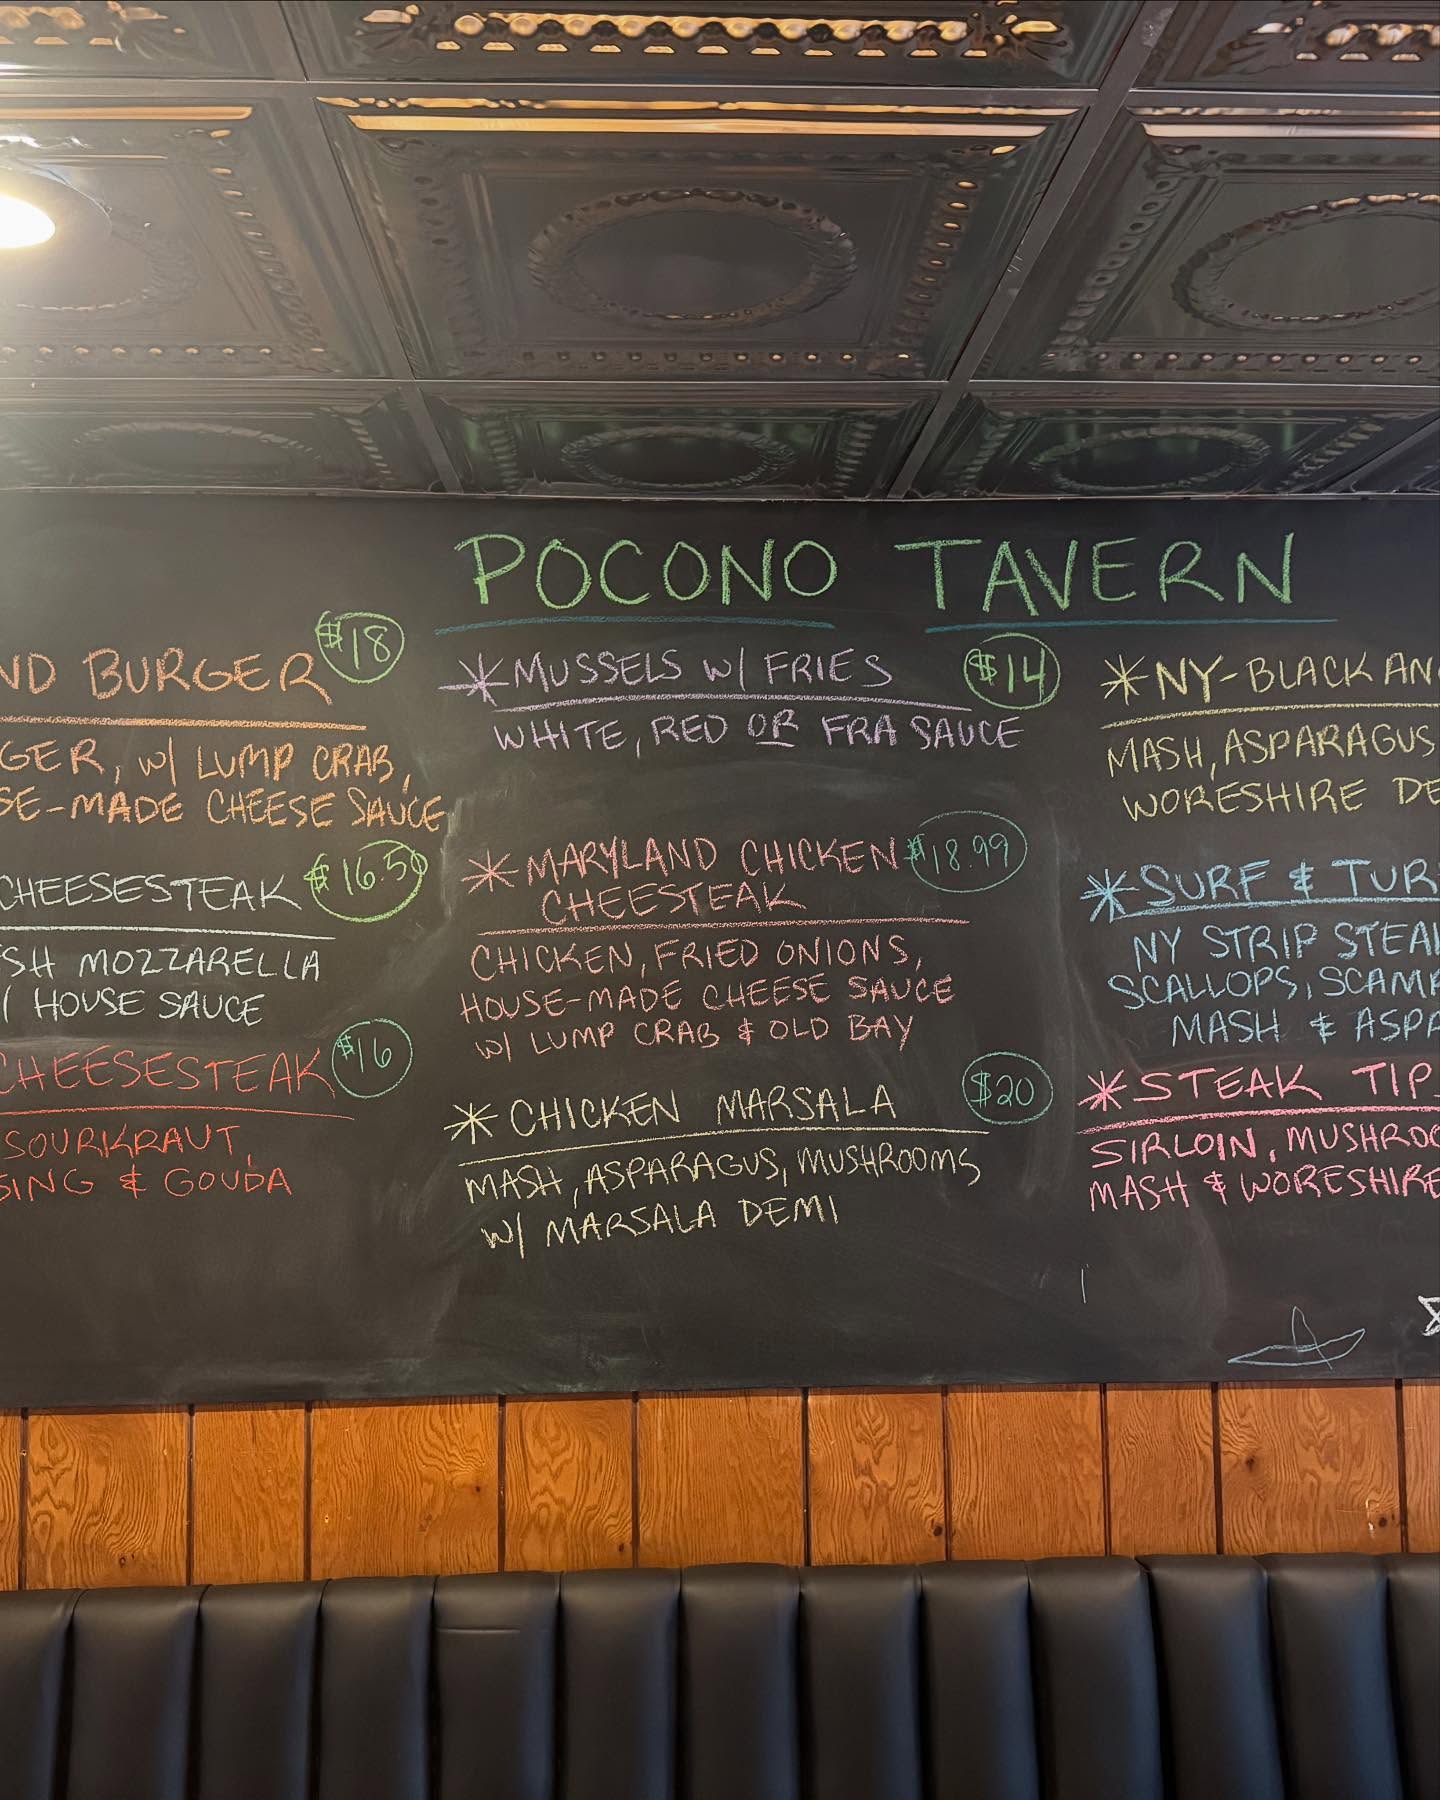 POCONO TAVERN
ND BURGER $18
GER, w/ LUMP CRAB,
SE-MADE CHEESE SAUCE
CHEESESTEAK $16.50
SH MOZZARELLA
/ HOUSE SAUCE
CHEESESTEAK $16
SOURKRAUT,
SING & GOUDA
*MUSSELS w/ FRIES $14
WHITE, RED OR FRA SAUCE
*MARYLAND CHICKEN $18.99
CHEESTEAK
CHICKEN, FRIED ONIONS,
HOUSE-MADE CHEESE SAUCE
w/ LUMP CRAB & OLD BAY
*CHICKEN MARSALA $20
MASH, ASPARAGUS, MUSHROOMS
w/ MARSALA DEMI
*NY-BLACK AN
MASH, ASPARAGUS
WORESHIRE DE
*SURF & TUR
NY STRIP STEA
SCALLOPS, SCAMP
MASH & ASPA
*STEAK TIP
SIRLOIN, MUSHROO
MASH & WORESHIRE